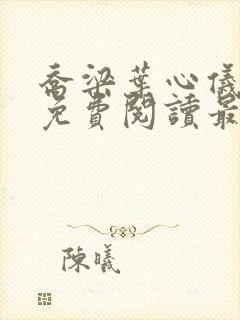 喬梁葉心儀
免費閱讀最
陳曦